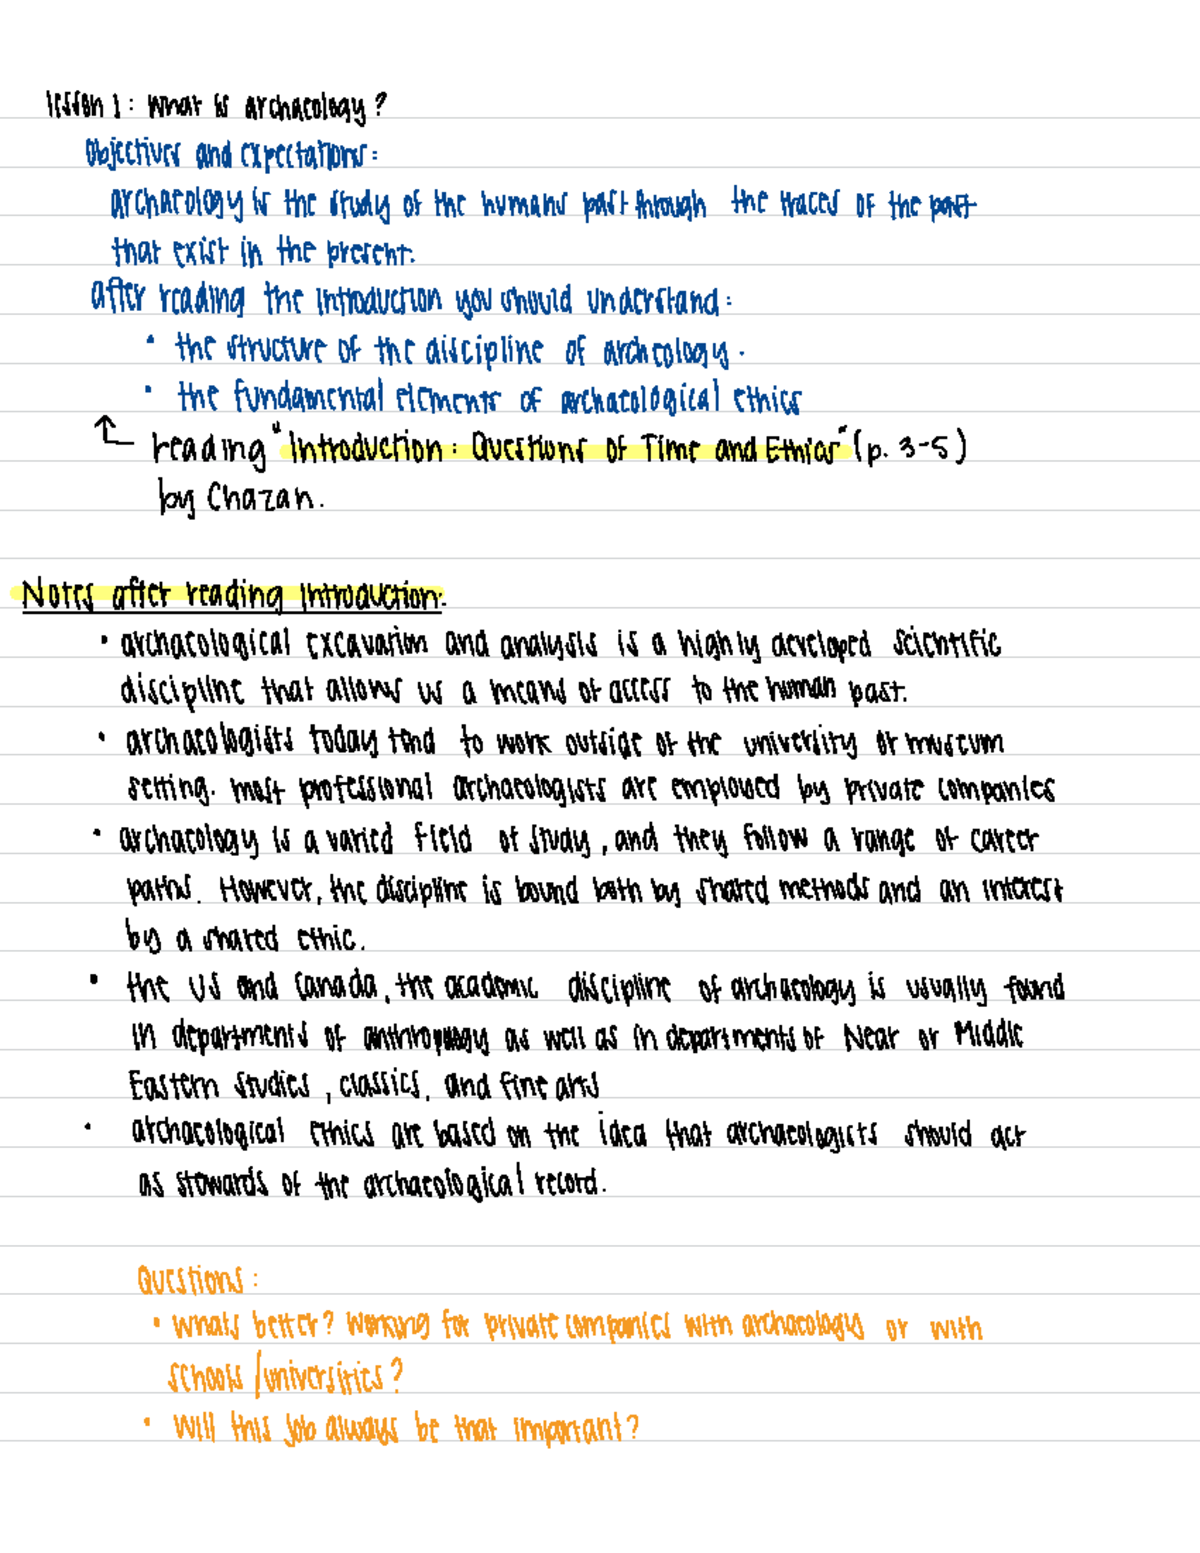 lesson 1: What is archaeology?
Objectives and expectations:
archaeology is the study of the humans past through the traces of the past
that exist in the present.
after reading the introduction you should understand:
• the structure of the discipline of archeology.
• the fundamental elements of archaeological ethics
reading "Introduction: Questions of Time and Ethics" (p. 3-5)
by Chazan.
Notes after reading Introduction:
• archaeological excavation and analysis is a highly developed scientific
discipline that allows us a means of access to the human past.
• archaeologists today tend to work outside of the university or museum
setting. most professional archaeologists are employed by private companies
• archaeology is a varied field of study, and they follow a range of career
paths. However, the discipline is bound both by shared methods and an interest
by a shared ethic.
• the US and Canada, the academic discipline of archaeology is usually found
in departments of anthropology as well as in departments of Near or Middle
Eastern Studies, classics, and fine arts
• archaeological ethics are based on the idea that archaeologists should act
as stewards of the archaeological record.
Questions:
• whats better? Working for private companies with archaeology or with
schools/universities?
• Will this job always be that important?